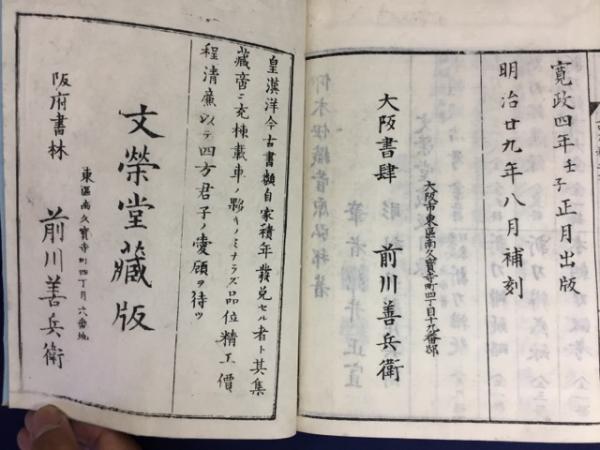 寛政四年壬子正月出版
明治廿九年八月補刻
大阪市東區南久寶寺町四丁目十九番邸
大阪書肆 前川善兵衛
皇漢洋今古書類自家積年發兌セル者ト其集
藏啻ニ充棟載車ノ夥キノミナラズ品位精工價
程清廉以テ四方君子ノ愛顧ヲ待ツ
文榮堂藏版
東區南久寶寺町四丁目六番地
阪府書林 前川善兵衛